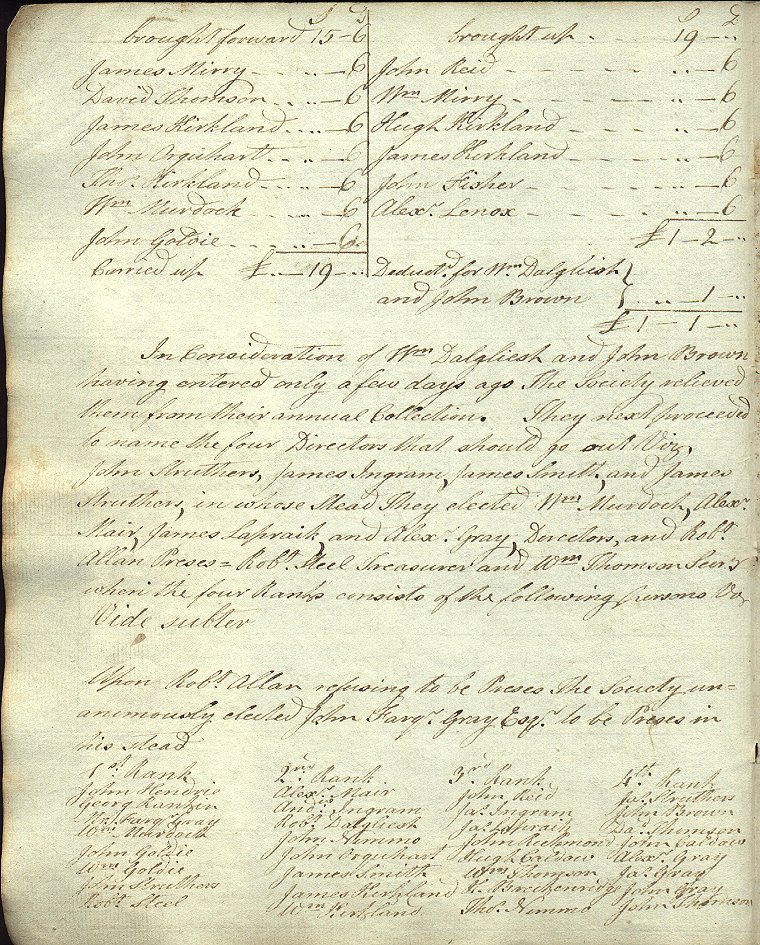 S D
brought forward 15-6
James Mirry - - .. - 6
David Thomson - - .. - 6
James Kirkland - - .. - 6
John Orquhart - - .. - 6
Thos. Kirkland - - .. - 6
Wm Murdock - - .. - 6
John Goldie - - .. - 6
Carried up £ .. - 19 - ..
S D
brought up - - 19 - ..
John Reid - - - .. - 6
Wm Mirry - - - .. - 6
Hugh Kirkland - - - .. - 6
James Kirkland - - - .. - 6
John Fisher - - - .. - 6
Alexr. Lenox - - - .. - 6
£ 1 - 2 - ..
Deductd. for Wm. Dalgliesh
and John Brown } .. - 1 - ..
£ 1 - 1 - ..
In Consideration of Wm Dalgliesh and John Brown
having entered only a few days ago The Society relieved
them from their annual Collection. They next proceeded
to name the four Directors that should go out Viz,
John Struthers, James Ingram, James Smith, and James
Struthers, in whose Stead They elected Wm Murdoch, Alexr.
Mair, James Lapraik, and Alexr. Gray, Directors, and Robt.
Allan Preses = Robt. Steel Treasurer and Wm Thomson Secry
when the four Ranks consists of the following persons Viz
Vide subter
Upon Robt. Allan refusing to be Preses The Society un=
animously elected John Farqr. Gray Esqr. to be Preses in
his stead
1st. Rank
John Hendrie
Georg Rankin
Jno. Farqr. Gray
Wm. Murdoch
John Goldie
Wm Goldie
John Struthers
Robt. Steel
2nd. Rank
Alexr. Mair
Andw. Ingram
Robt. Dalgliesh
John Nimmo
John Orquhart
James Smith
James Kirkland
Wm Kirkland
3rd. Rank
John Reid
Jas. Ingram
Jas. Lapraik
John Richmond
Hugh Caldow
Wm Thomson
Breckenridge
Thos. Nimmo
4th. Rank
Jas. Struthers
John Brown
Da. Thomson
John Caldow
Alexr. Gray
Jas. Gray
John Gray
John Thomson